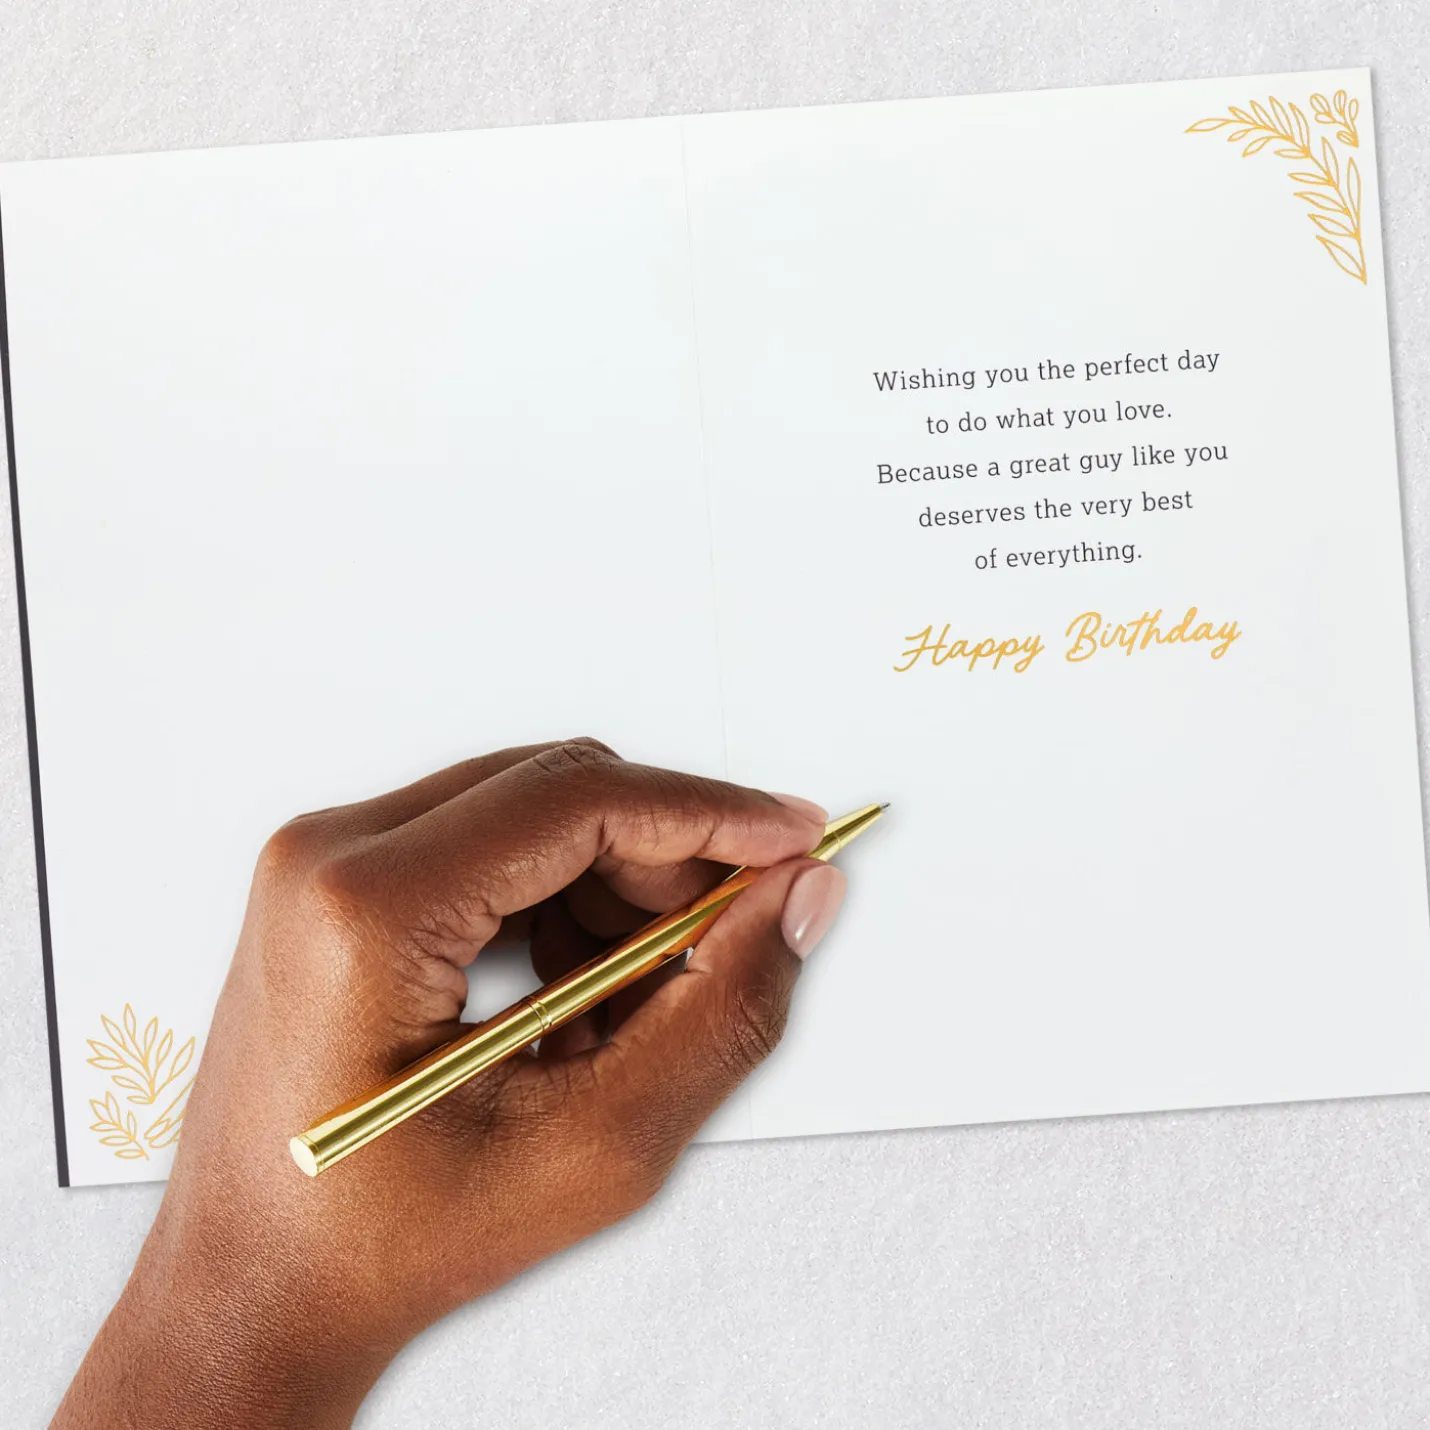 Wishing you the perfect day
to do what you love.
Because a great guy like you
deserves the very best
of everything.
Happy Birthday